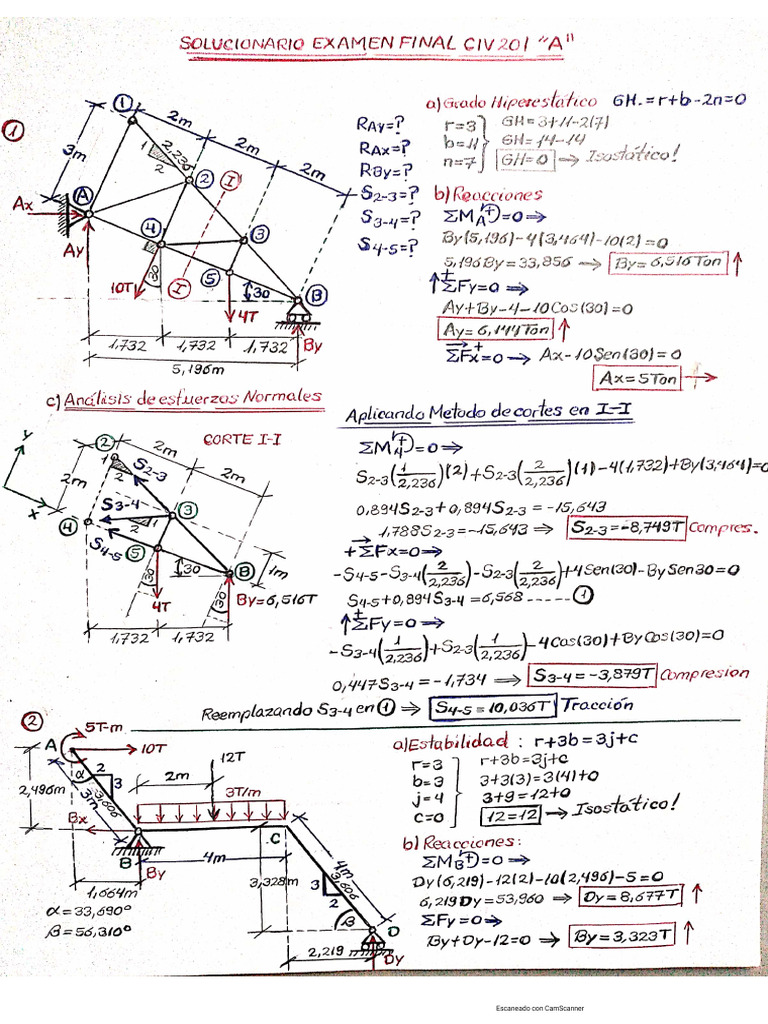 SOLUCIONARIO EXAMEN FINAL CIV 201 "A"
1
1
2m
2m
2m
3m
2,236
1
2
2
I
I
A
Ax
Ay
4
3
5
B
30
30
10T
4T
By
1,732
1,732
1,732
5,196m
RAy=?
RAx=?
RBy=?
S2-3=?
S3-4=?
S4-5=?
a) Grado Hiperestático GH.=r+b-2n=0
r=3
b=11
n=7
GH=3+11-2(7)
GH=14-14
GH=0 → Isostático!
b) Reacciones
ΣMA+)=0 ⇒
By(5,196)-4(3,464)-10(2)=0
5,196By=33,856 → By=6,516Ton ↑
↑+ΣFy=0 ⇒
Ay+By-4-10Cos(30)=0
Ay=6,144Ton ↑
ΣFx+=0 ⇒ Ax-10Sen(30)=0
Ax=5Ton →
c) Análisis de esfuerzos Normales
CORTE I-I
y
x
2
2m
2m
2m
1
2
S2-3
S3-4
S4-5
1
2
3
4
5
B
30
30
30
1m
4T
By=6,516T
1,732
1,732
Aplicando Metodo de cortes en I-I
ΣM4+)=0 ⇒
S2-3(1/2,236)(2)+S2-3(2/2,236)(1)-4(1,732)+By(3,464)=0
0,894S2-3+0,894S2-3 = -15,643
1,788S2-3=-15,643 ⇒ S2-3=-8,749T Compres.
+ΣFx=0 ⇒
-S4-5-S3-4(2/2,236)-S2-3(2/2,236)+4Sen(30)-BySen30=0
S4-5+0,894S3-4=6,568 ------ 1
↑+ΣFy=0 ⇒
-S3-4(1/2,236)+S2-3(1/2,236)-4Cos(30)+ByCos(30)=0
0,447S3-4=-1,734 ⇒ S3-4=-3,879T Compresion
Reemplazando S3-4 en 1 ⇒ S4-5=10,036T Tracción
2
5T-m
A
10T
α
2
3
3,606
3m
2,496m
Bx
B
By
1,664m
α=33,690°
β=56,310°
12T
2m
3T/m
4m
C
4m
3,606
3
2
3,328m
β
D
2,219
Dy
a) Estabilidad : r+3b=3j+c
r=3
b=3
j=4
c=0
r+3b=3j+c
3+3(3)=3(4)+0
3+9=12+0
12=12 → Isostático!
b) Reacciones:
ΣMB+)=0 ⇒
Dy(6,219)-12(2)-10(2,496)-5=0
6,219Dy=53,960 ⇒ Dy=8,677T ↑
ΣFy=0 ⇒
By+Dy-12=0 ⇒ By=3,323T ↑
Escaneado con CamScanner